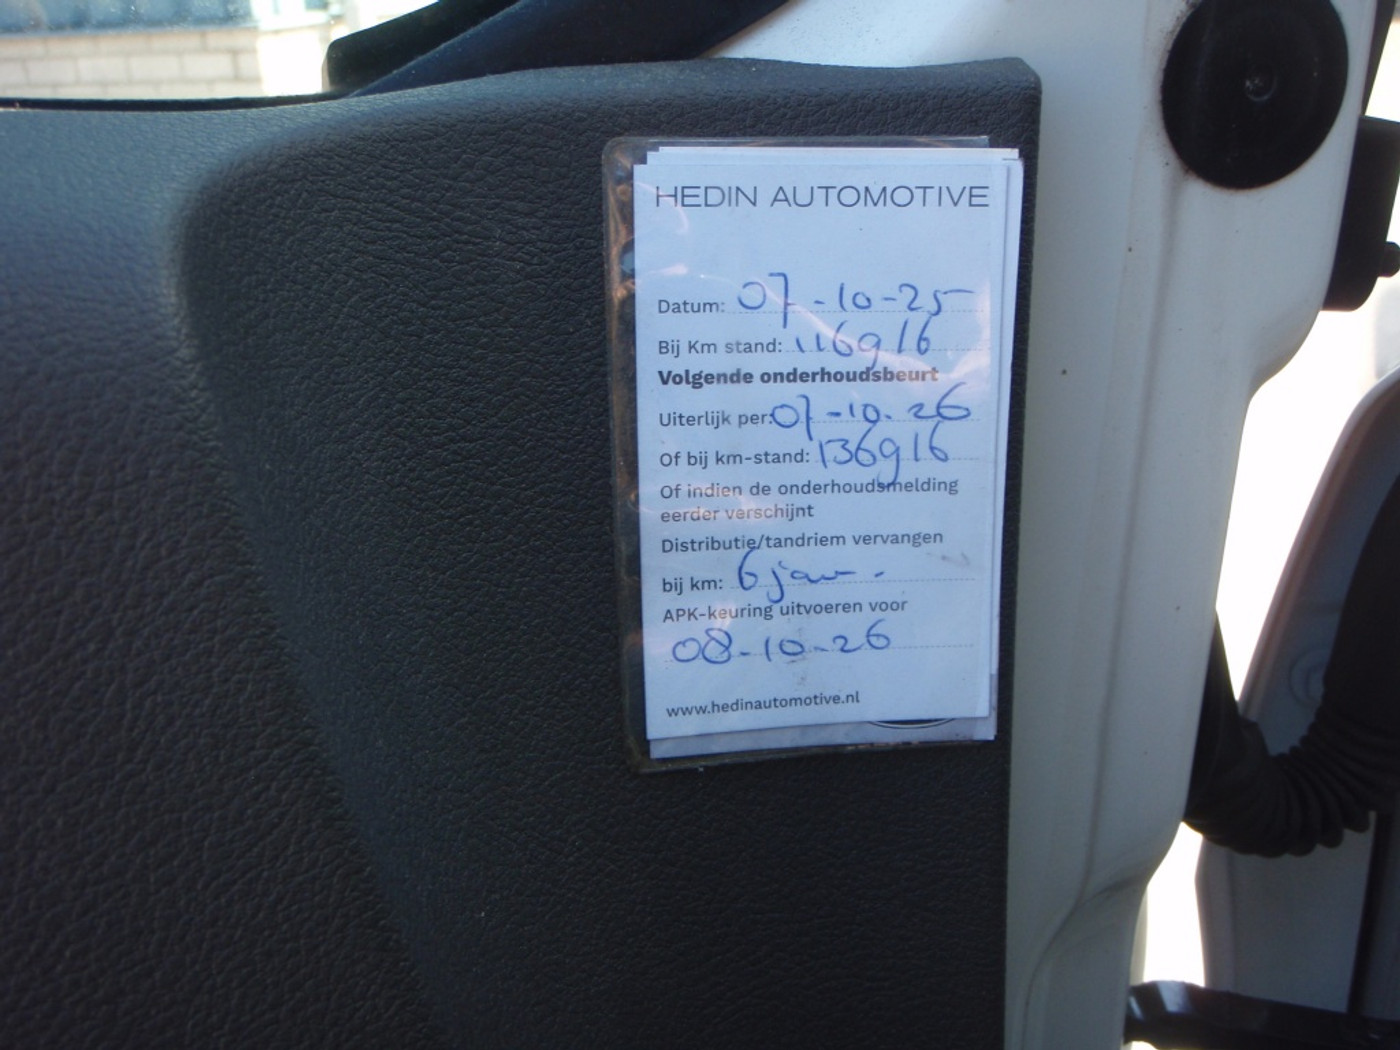 HEDIN AUTOMOTIVE
Datum: 07-10-25
Bij Km stand: 116916
Volgende onderhoudsbeurt
Uiterlijk per: 07-10-26
Of bij km-stand: 136916
Of indien de onderhoudsmelding
eerder verschijnt
Distributie/tandriem vervangen
bij km: 6 jaar.
APK-keuring uitvoeren voor
08-10-26
www.hedinautomotive.nl